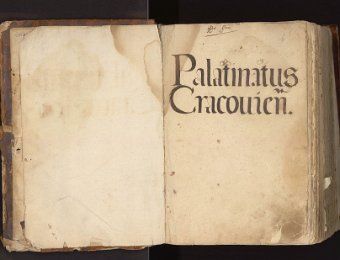 Palatinatus
Cracouien̄.